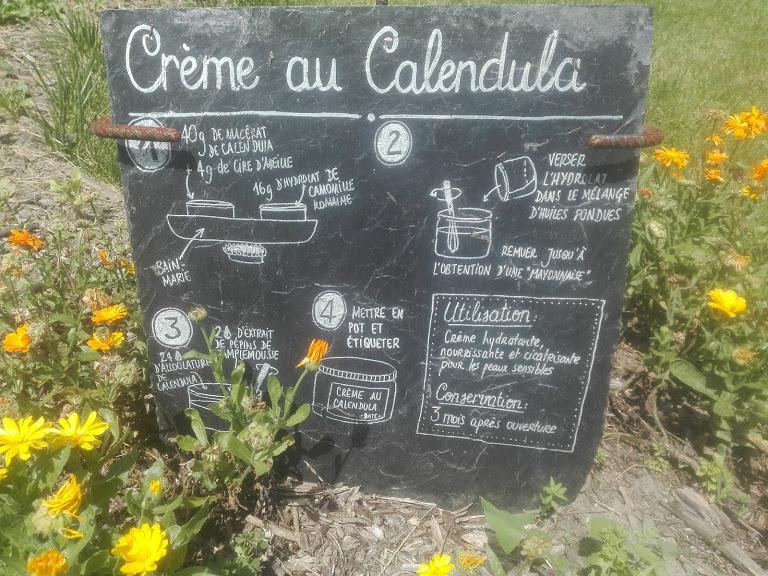 Crème au Calendula
1
40g DE MACÉRAT
DE CALENDULA
+ 4g de CIRE D'ABEILLE
16g D'HYDROLAT DE
CAMOMILLE
ROMAINE
BAIN-
MARIE
2
VERSER
L'HYDROLAT
DANS LE MÉLANGE
D'HUILES FONDUES
REMUER JUSQU'À
L'OBTENTION D'UNE "MAYONNAISE"
3
D'EXTRAIT
DE PÉPINS DE
PAMPLEMOUSSE
D'ALCOOLATURE
DE
CALENDULA
4
METTRE EN
POT ET
ÉTIQUETER
CRÈME AU
CALENDULA
DATE:
Utilisation:
Crème hydratante,
nourrissante et cicatrisante
pour les peaux sensibles
Conservation:
3 mois après ouverture